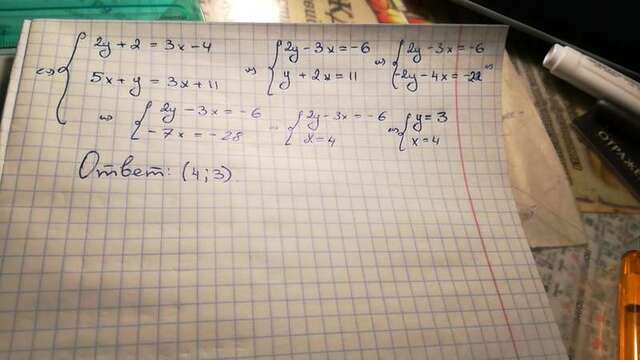 ⇔ { 2y + 2 = 3x - 4
5x + y = 3x + 11
⇔ { 2y - 3x = -6
y + 2x = 11
⇔ { 2y - 3x = -6
-2y - 4x = -22 ⇔
⇔ { 2y - 3x = -6
-7x = -28
{ 2y - 3x = -6
x = 4
⇔ { y = 3
x = 4
Ответ: (4; 3).